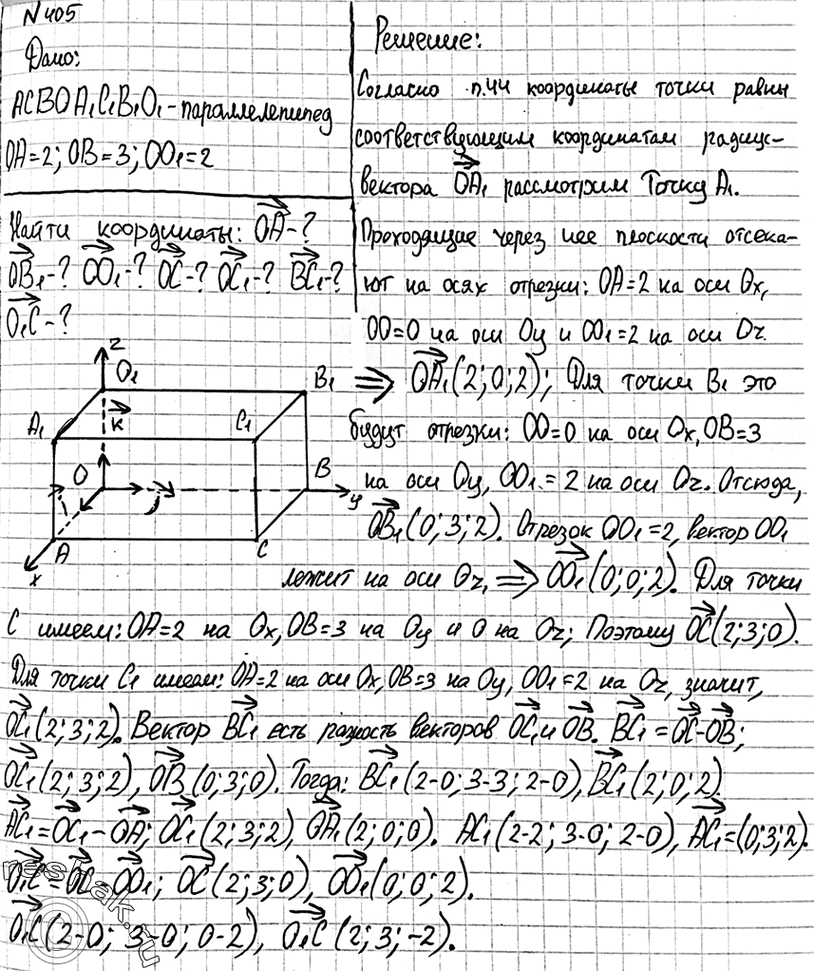 N 405
Дано:
ACBOA₁C₁B₁O₁ - параллелепипед
OA=2; OB=3; OO₁=2
Найти координаты: OA-?
OB₁-? OO₁-? OC-? OC₁-? BC₁-?
O₁C-?
Решение:
Согласно п.44 координаты точки равны
соответствующим координатам радиус-
вектора OA₁ рассмотрим Точку A₁.
Проходящие через нее плоскости отсека-
ют на осях отрезки: OA=2 на оси Ox,
OO=0 на оси Oy и OO₁=2 на оси Oz.
⇒ OA₁(2;0;2); Для точки B₁ это
будут отрезки: OO=0 на оси Ox, OB=3
на оси Oy, OO₁=2 на оси Oz. Отсюда,
OB₁(0;3;2). Отрезок OO₁=2, вектор OO₁
лежит на оси Oz, ⇒ OO₁(0;0;2). Для точки
C имеем: OA=2 на Ox, OB=3 на Oy и 0 на Oz; Поэтому OC(2;3;0).
Для точки C₁ имеем: OA=2 на оси Ox, OB=3 на Oy, OO₁=2 на Oz, значит,
OC₁(2;3;2). Вектор BC₁ есть разность векторов OC₁ и OB. BC₁=OC-OB;
OC₁(2;3;2), OB(0;3;0). Тогда: BC₁(2-0;3-3;2-0), BC₁(2;0;2).
AC₁=OC₁-OA; OC₁(2;3;2), OA₁(2;0;0). AC₁(2-2;3-0;2-0), AC₁=(0;3;2).
O₁C=OC-OO₁; OC(2;3;0), OO₁(0;0;2).
O₁C(2-0;3-0;0-2), O₁C(2;3;-2).
z
O₁
B₁
A₁
C₁
k
O
B
i
j
y
A
C
x
reshak.ru